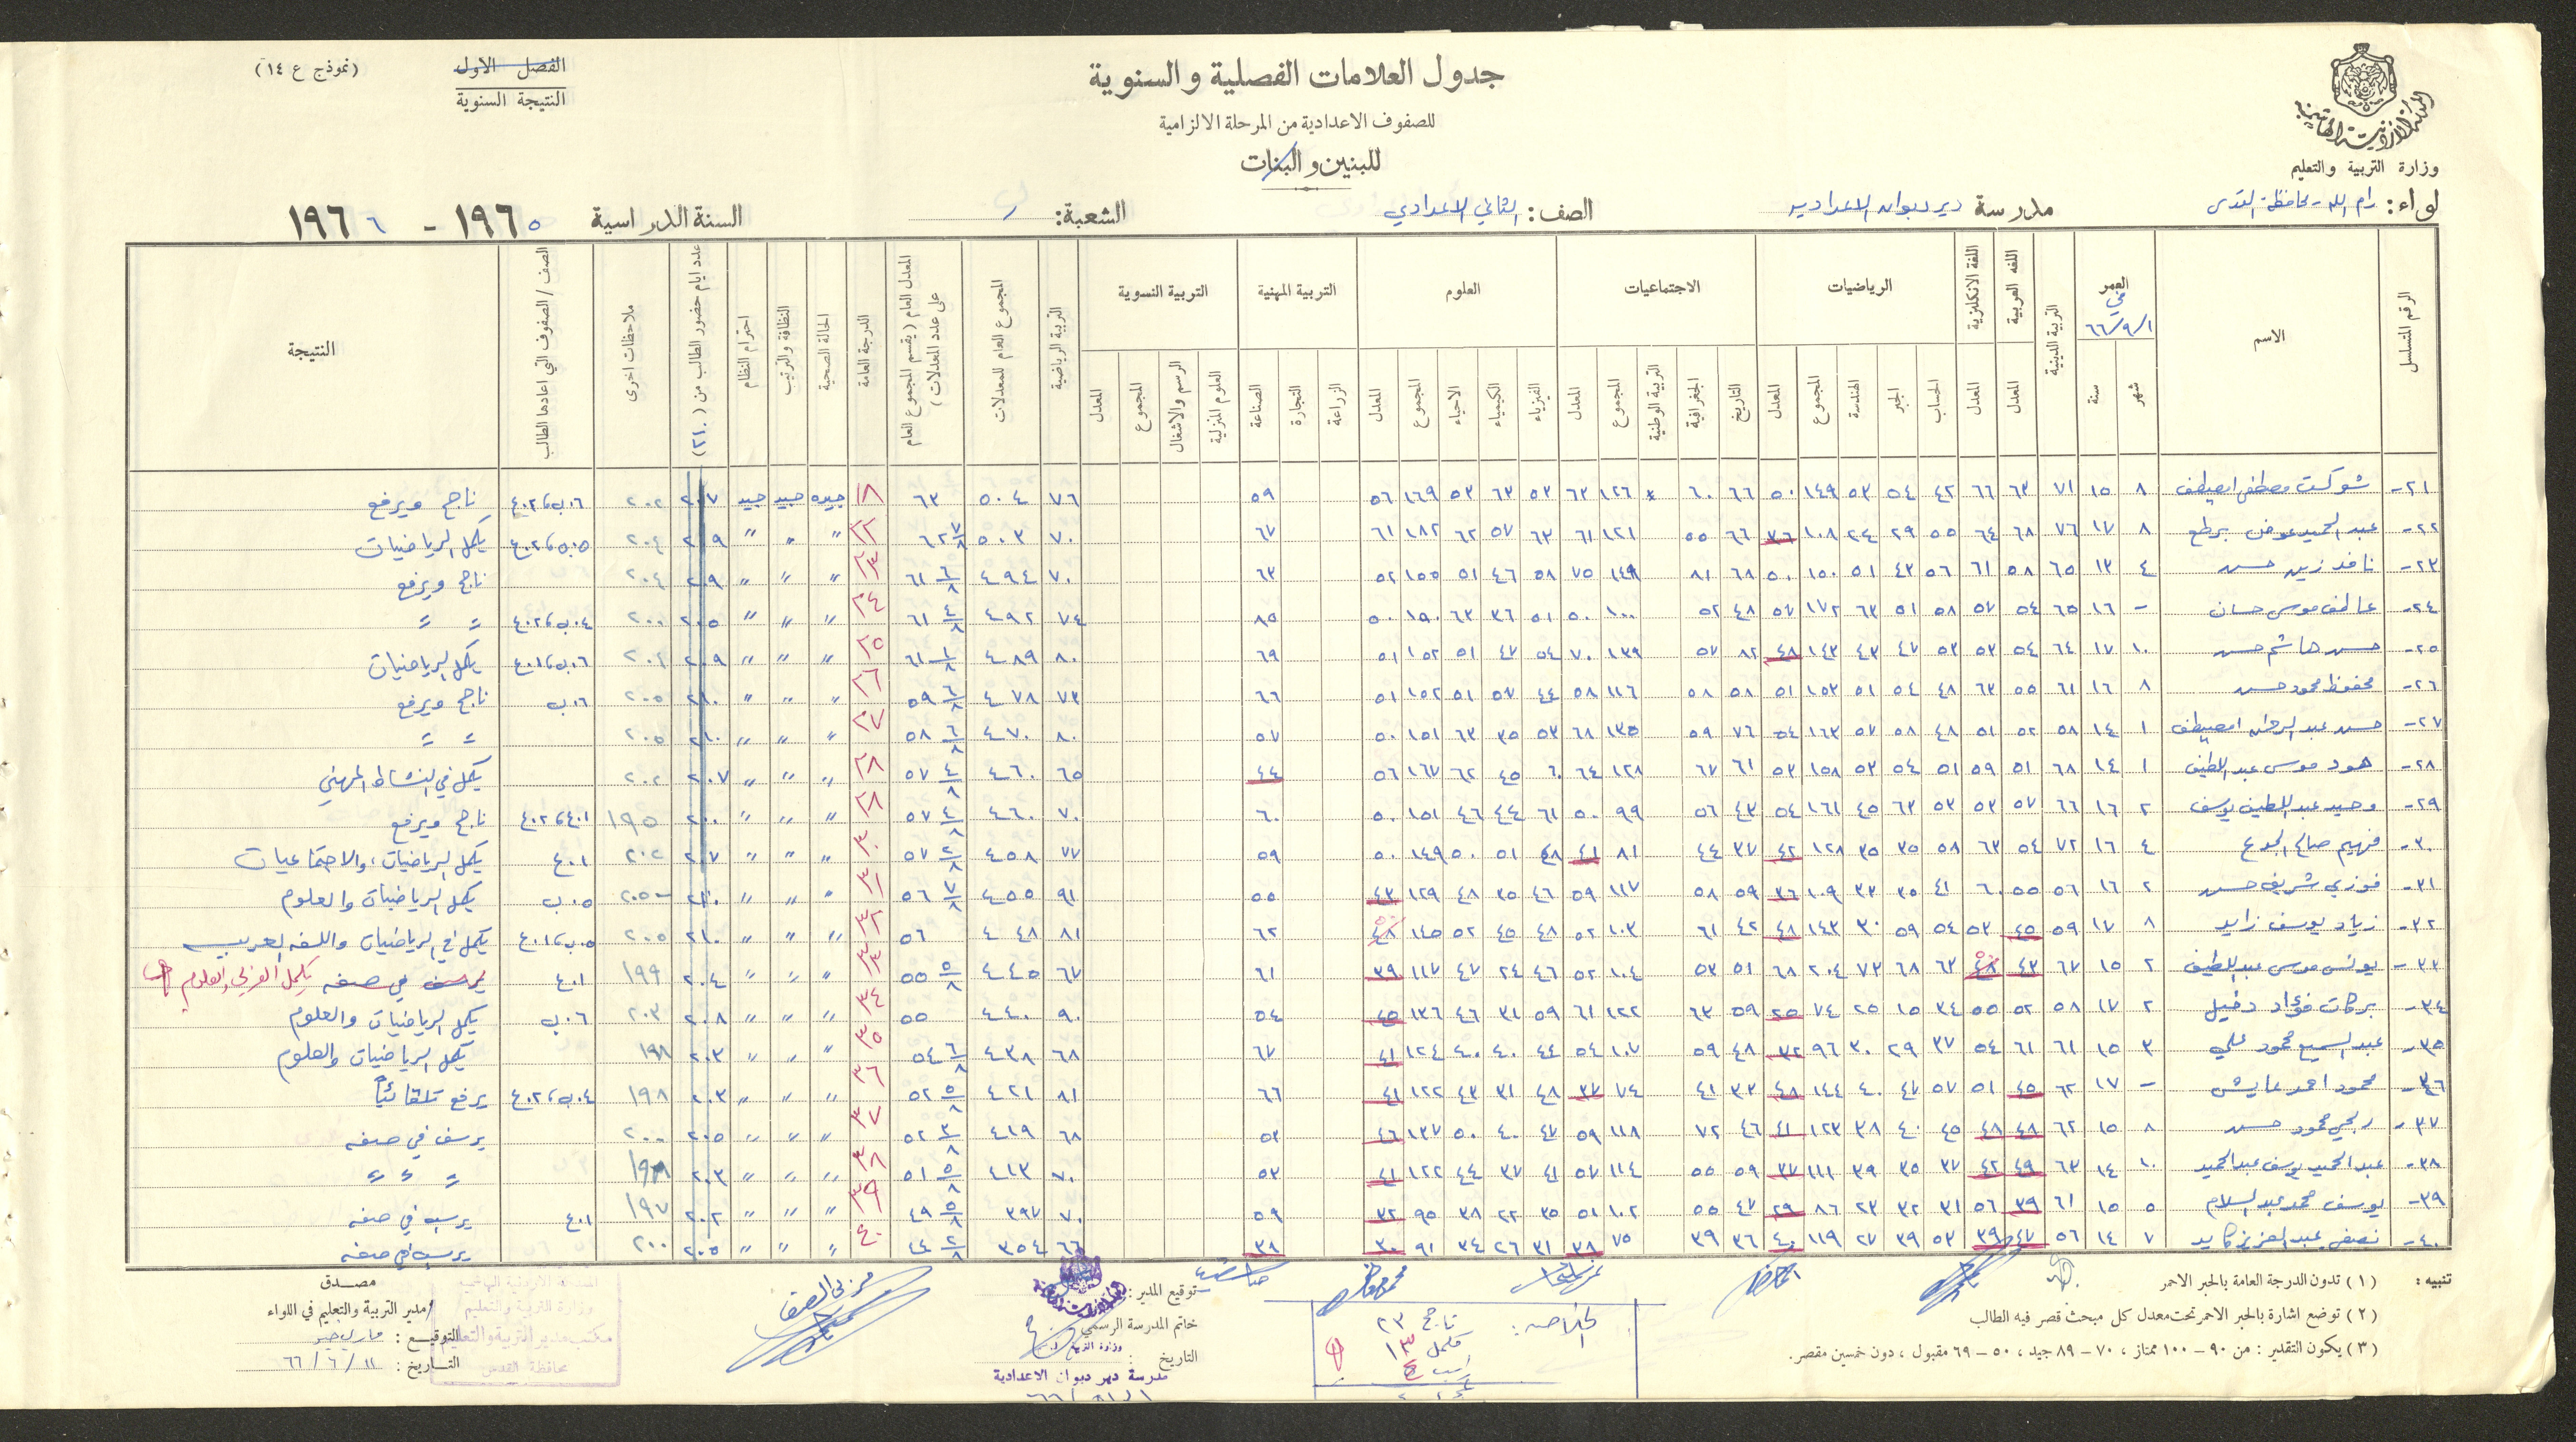 (نموذج ع ١٤)
الفصل الاول
النتيجة السنوية
جدول العلامات الفصلية والسنوية
للصفوف الاعدادية من المرحلة الالزامية
للبنين والبنات
وزارة التربية والتعليم
لواء: رام الله - محافظة القدس مدرسة ديردبوان الاعدادية الصف: الثاني الاعدادي الشعبة: ب السنة الدراسية ١٩٦٥ - ١٩٦٦
الرقم المتسلسل الاسم العمر في ١/٩/٦٦ شهر سنة التربية الدينية اللغه العربية المعدل اللغة الانكليزية المعدل الرياضيات الحساب الجبر الهندسة المجموع المعدل الاجتماعيات التاريخ الجغرافية التربية الوطنية المجموع المعدل العلوم الفيزياء الكيمياء الاحياء المجموع المعدل التربية المهنية الزراعة التجارة الصناعة التربية النسوية العلوم المنزلية الرسم والاشغال المجموع المعدل التربية الرياضية المجموع العام للمعدلات المعدل العام (يقسم المجموع العام على عدد المعدلات) الدرجة العامة الحالة الصحية النظافة والترتيب احترام النظام عدد ايام حضور الطالب من (٢١٠) ملاحظات اخرى الصف / الصفوف التي اعادها الطالب النتيجة
٢١- شوكت مصطفى اصيطف ٨ ١٥ ٧١ ٦٣ ٦٦ ٤٢ ٥٤ ٥٣ ١٤٩ ٥٠ ٦٦ ٦٠ * ١٢٦ ٦٣ ٥٣ ٦٣ ٥٣ ١٦٩ ٥٦ ٥٩ ٧٦ ٥٠٤ ٦٣ جيده جيد جيد ٢٠٧ ٢٠٢ ناجح ويرفع
٢٢- عبد الحميد عوض برطع ٨ ١٧ ٧٦ ٦٨ ٦٤ ٥٥ ٢٩ ٢٤ ١٠٨ ٣٦ ٦٦ ٥٥ ١٢١ ٦١ ٦٣ ٥٧ ٦٢ ١٨٢ ٦١ ٦٧ ٧٠ ٥٠٣ ٦٢ ٧/٨ ٢٢ " " " ٢٠٩ ٢٠٤ يكمل الرياضيات
٢٣- نافذ زين حسن ٤ ١٣ ٦٥ ٥٨ ٦١ ٥٦ ٤٣ ٥١ ١٥٠ ٥٠ ٦٨ ٨١ ١٤٩ ٧٥ ٥٨ ٤٦ ٥١ ١٥٥ ٥٢ ٦٣ ٧٠ ٤٩٤ ٦١ ٦/٨ ٢٣ " " " ٢٠٩ ٢٠٤ ناجح ويرفع
٢٤- عاطف موسى حسان - ١٦ ٦٥ ٥٤ ٥٧ ٥٨ ٥١ ٦٣ ١٧٢ ٥٧ ٤٨ ٥٢ ١٠٠ ٥٠ ٥١ ٣٦ ٦٣ ١٥٠ ٥٠ ٨٥ ٧٤ ٤٩٢ ٦١ ٤/٨ ٢٤ " " " ٢٠٥ ٢٠٠ " "
٢٥- حسن هاشم حسن ١٠ ١٧ ٦٤ ٥٤ ٥٣ ٥٣ ٤٧ ٤٣ ١٤٣ ٤٨ ٨٢ ٥٧ ١٣٩ ٧٠ ٥٤ ٤٧ ٥١ ١٥٢ ٥١ ٦٩ ٨٠ ٤٨٩ ٦١ ١/٨ ٢٥ " " " ٢٠٩ ٢٠٤ يكمل الرياضيات
٢٦- محفوظ محمود حسن ٨ ١٦ ٦١ ٥٥ ٦٣ ٤٨ ٥٤ ٥١ ١٥٣ ٥١ ٥٨ ٥٨ ١١٦ ٥٨ ٤٤ ٥٧ ٥١ ١٥٢ ٥١ ٦٦ ٧٣ ٤٧٨ ٥٩ ٦/٨ ٢٦ " " " ٢١٠ ٢٠٥ ٠٦ب ناجح ويرفع
٢٧- حسن عبد الرحمن اصيطف ١ ١٤ ٥٨ ٥٢ ٥١ ٤٨ ٥٨ ٥٧ ١٦٣ ٥٤ ٧٦ ٥٩ ١٣٥ ٦٨ ٥٣ ٣٥ ٦٣ ١٥١ ٥٠ ٥٧ ٨٠ ٤٧٠ ٥٨ ٦/٨ ٢٧ " " " ٢١٠ ٢٠٥ " "
٢٨- هود موسى عبد اللطيف ١ ١٤ ٦٨ ٥١ ٥٩ ٥١ ٥٤ ٥٣ ١٥٨ ٥٣ ٦١ ٦٧ ١٢٨ ٦٤ ٦٠ ٤٥ ٦٢ ١٦٧ ٥٦ ٤٤ ٦٥ ٤٦٠ ٥٧ ٤/٨ ٢٨ " " " ٢٠٧ ٢٠٢ يكمل في النشاط المهني
٢٩- وحيد عبد اللطيف يوسف ٢ ١٦ ٦٦ ٥٧ ٥٣ ٥٣ ٦٣ ٤٥ ١٦١ ٥٤ ٤٣ ٥٦ ٩٩ ٥٠ ٦١ ٤٤ ٤٦ ١٥١ ٥٠ ٦٠ ٧٠ ٤٦٠ ٥٧ ٤/٨ ٢٨ " " " ٢٠٠ ١٩٥ ناجح ويرفع
٣٠- فهيم صالح الجدع ٤ ١٦ ٧٢ ٥٤ ٦٣ ٥٨ ٣٥ ٣٥ ١٢٨ ٤٢ ٣٧ ٤٤ ٨١ ٤١ ٤٨ ٥١ ٥٠ ١٤٩ ٥٠ ٥٩ ٧٧ ٤٥٨ ٥٧ ٢/٨ ٣٠ " " " ٢٠٧ ٢٠٢ ٠١ع يكمل الرياضيات، والاجتماعيات
٣١- فوزي شريف حسن ٢ ١٦ ٥٦ ٥٥ ٦٠ ٤١ ٣٥ ٣٣ ١٠٩ ٣٦ ٥٩ ٥٨ ١١٧ ٥٩ ٤٦ ٣٥ ٤٨ ١٢٩ ٤٣ ٥٥ ٩١ ٤٥٥ ٥٦ ٧/٨ ٣١ " " " ٢١٠ ٢٠٥ ٠٥ب يكمل الرياضيات والعلوم
٣٢- زياد يوسف زايد ٨ ١٧ ٥٩ ٤٥ ٥٣ ٥٤ ٥٩ ٣٠ ١٤٣ ٤٨ ٤٢ ٦١ ١٠٣ ٥٢ ٤٨ ٤٥ ٥٢ ١٤٥ ٤٨ ٦٢ ٨١ ٤٤٨ ٥٦ ٣٢ " " " ٢١٠ ٢٠٥ يكمل في الرياضيات واللغه العربيه
٣٣- يونس موسى عبد اللطيف ٢ ١٥ ٦٧ ٤٣ ٤٨ ٦٣ ٦٨ ٧٣ ٢٠٤ ٦٨ ٥١ ٥٣ ١٠٤ ٥٢ ٤٦ ٢٤ ٤٧ ١١٧ ٣٩ ٦١ ٦٧ ٤٤٥ ٥٥ ٥/٨ ٣٣ " " " ٢٠٤ ١٩٩ ٠١ع يرسب في صفه يكمل العربي والعلوم
٣٤- بركات فؤاد دخيل ٢ ١٧ ٥٨ ٥٢ ٥٥ ٣٤ ١٥ ٢٥ ٧٤ ٢٥ ٥٩ ٦٣ ١٢٢ ٦١ ٥٩ ٣١ ٤٦ ١٣٦ ٤٥ ٥٤ ٩٠ ٤٤٠ ٥٥ ٣٤ " " " ٢٠٨ ٢٠٣ ٠٦ب يكمل الرياضيات والعلوم
٣٥- عبد السميع محمود علي ٣ ١٥ ٦١ ٦١ ٥٤ ٣٧ ٢٩ ٣٠ ٩٦ ٣٢ ٤٨ ٥٩ ١٠٧ ٥٤ ٤٤ ٤٠ ٤٠ ١٢٤ ٤١ ٦٧ ٦٨ ٤٣٨ ٥٤ ٦/٨ ٣٥ " " " ٢٠٣ ١٩٨ يكمل الرياضيات والعلوم
٣٦- محمود احمد عايش - ١٧ ٦٢ ٤٥ ٥١ ٥٧ ٤٧ ٤٠ ١٤٤ ٤٨ ٣٣ ٤١ ٧٤ ٣٧ ٤٨ ٣١ ٤٣ ١٢٢ ٤١ ٦٦ ٨١ ٤٢١ ٥٢ ٥/٨ ٣٦ " " " ٢٠٣ ١٩٨ يرفع تلقائياً
٣٧- ربحي محمود حسن ٨ ١٥ ٦٢ ٤٨ ٤٨ ٤٥ ٤٠ ٣٨ ١٢٣ ٤١ ٤٦ ٧٢ ١١٨ ٥٩ ٤٧ ٤٠ ٥٠ ١٣٧ ٤٦ ٥٣ ٦٨ ٤١٩ ٥٢ ٣/٨ ٣٧ " " " ٢٠٥ ٢٠٠ يرسب في صفه
٣٨- عبد الحميد يوسف عبد الحميد ١٠ ١٤ ٦٣ ٤٩ ٤٢ ٣٧ ٣٥ ٣٩ ١١١ ٣٧ ٥٩ ٥٥ ١١٤ ٥٧ ٤١ ٣٧ ٤٤ ١٢٢ ٤١ ٥٣ ٧٠ ٤١٣ ٥١ ٥/٨ ٣٨ " " " ٢٠٣ ١٩٨ " " "
٣٩- يوسف محمد عبد السلام ٥ ١٥ ٦١ ٣٩ ٥٦ ٣١ ٣٢ ٢٣ ٨٦ ٢٩ ٤٧ ٥٥ ١٠٢ ٥١ ٣٥ ٢٢ ٣٨ ٩٥ ٣٢ ٥٩ ٧٠ ٣٩٧ ٤٩ ٥/٨ ٣٩ " " " ٢٠٢ ١٩٧ ٠١ع يرسب في صفه
٤٠- عبد العزيز كايد ٧ ١٤ ٥٦ ٤٧ ٣٩ ٥٣ ٣٩ ٢٧ ١١٩ ٤٠ ٣٦ ٣٩ ٧٥ ٣٨ ٣١ ٢٦ ٣٤ ٩١ ٣٠ ٣٨ ٦٦ ٣٥٤ ٤٤ ٢/٨ ٤٠ " " " ٢٠٥ ٢٠٠ يرسب في صفه
تنبيه: (١) تدون الدرجة العامة بالحبر الاحمر
(٢) توضع اشارة بالحبر الاحمر تحت معدل كل مبحث قصر فيه الطالب
(٣) يكون التقدير: من ٩٠ - ١٠٠ ممتاز، ٧٠ - ٨٩ جيد، ٥٠ - ٦٩ مقبول، دون خمسين مقصر.
الخلاصه: ناجح ٢٣
مكمل ١٣
راسب ٤
توقيع المدير:
خاتم المدرسة الرسمي
التاريخ:
مدرسة دير دبوان الاعدادية
مربي الصف
مصدق
مدير التربية والتعليم في اللواء
التوقيع:
التاريخ: ١١/٦/٦٦
المملكة الاردنية الهاشمية
وزارة التربية والتعليم
مكتب مدير التربية والتعليم
محافظة القدس